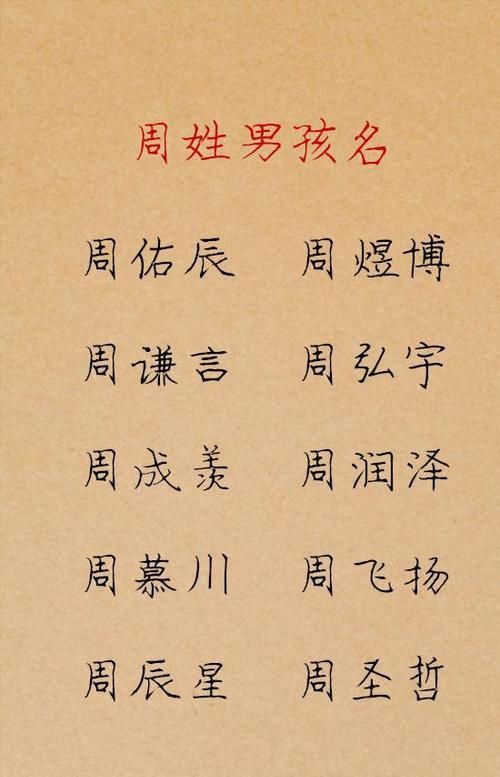 周姓男孩名
周佑辰 周煜博
周谦言 周弘宇
周成羡 周润泽
周慕川 周飞扬
周辰星 周圣哲